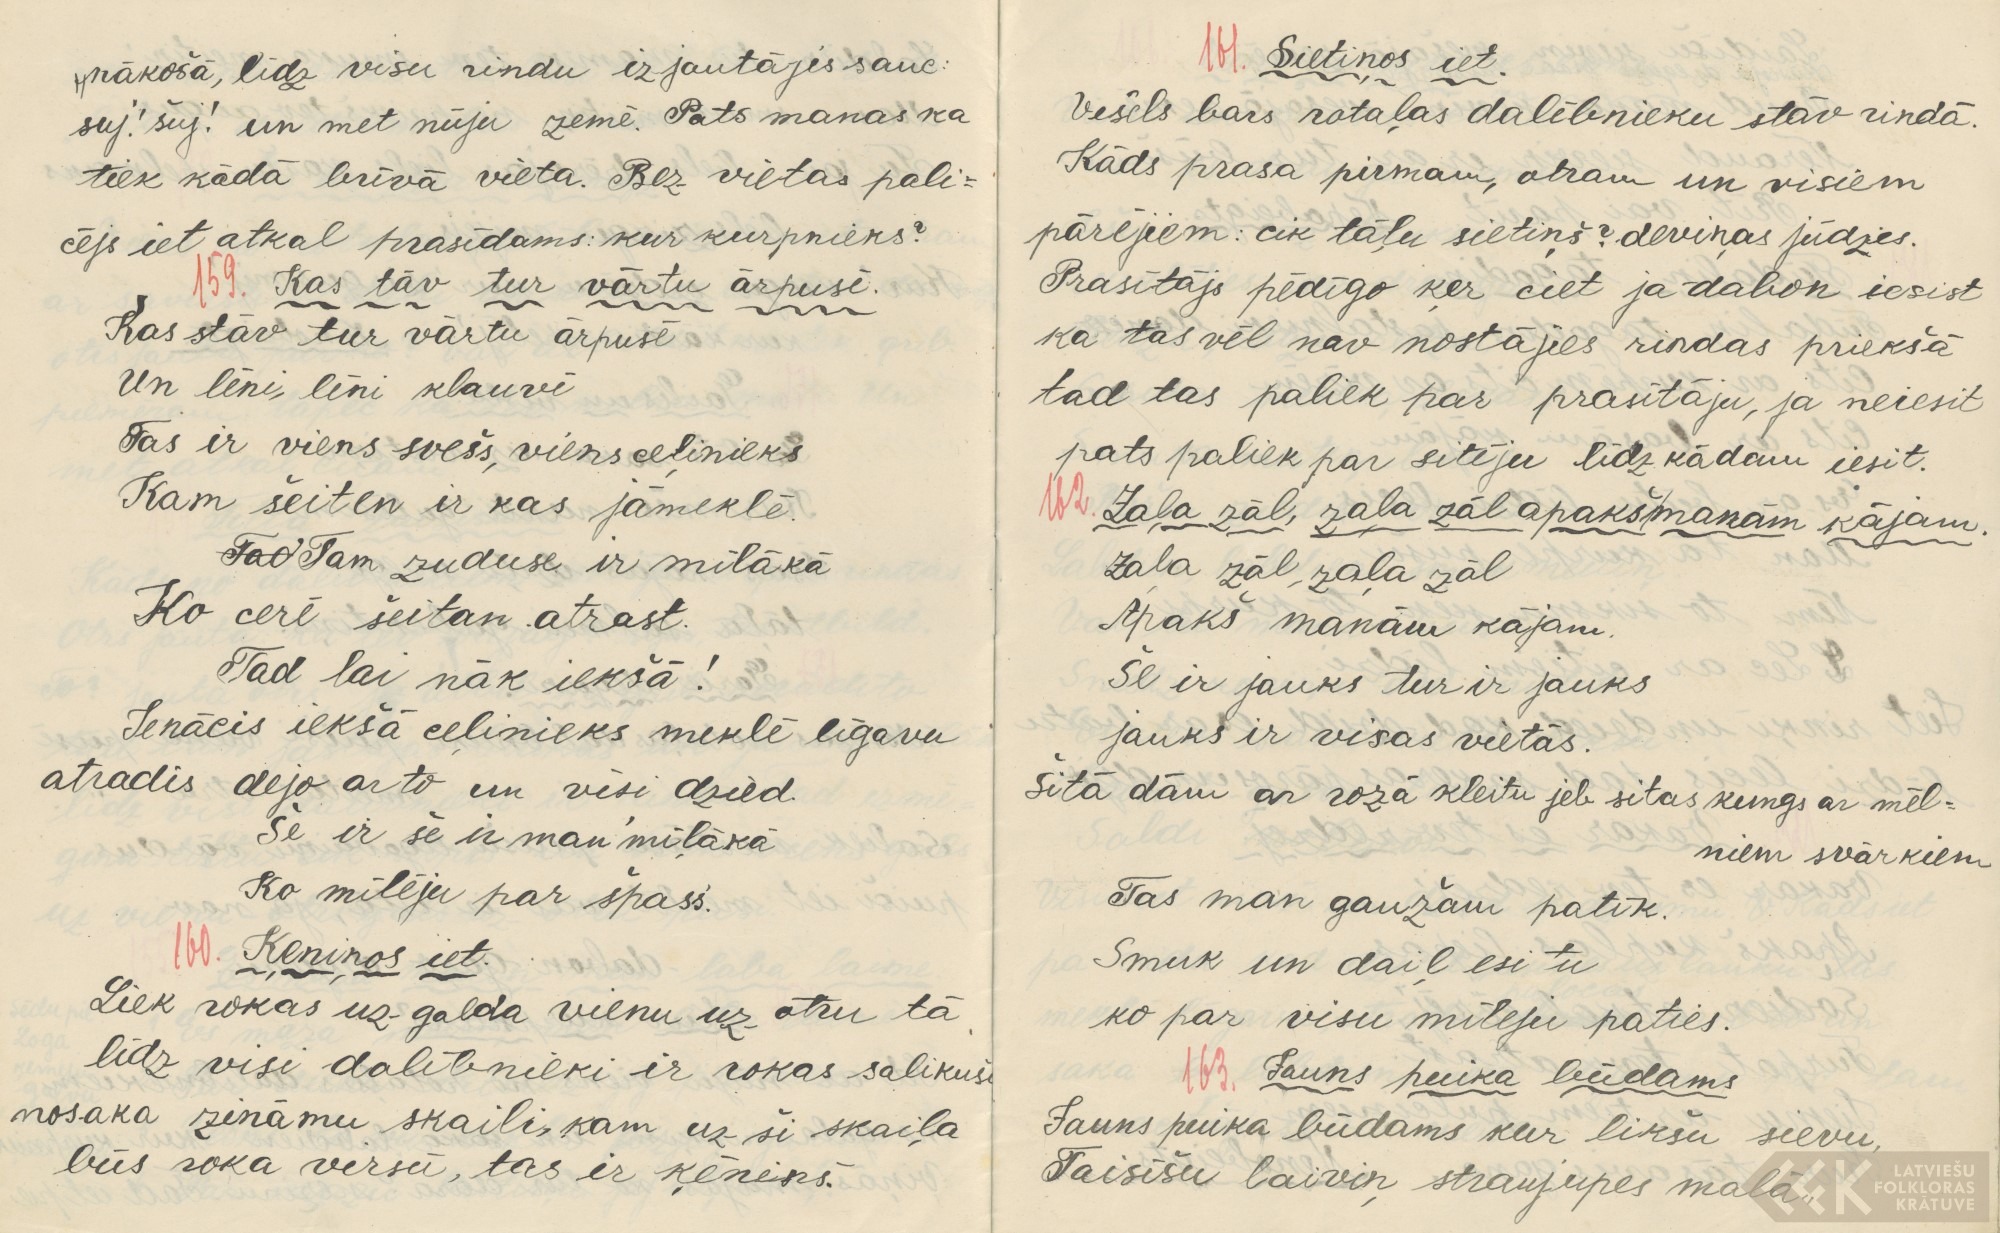 nākošā, līdz visu rindu izjautājis sauc:
šuj! šuj! un met nūju zemē. Pats manas ka
tiek kādā brīvā vieta. Bez vietas pali=
cējs iet atkal prasīdams: kur kurpnieks?
159. Kas tāv tur vārtu ārpusē.
Kas stāv tur vārtu ārpusē
Un lēni, lēni klauvē
Tas ir viens svešs, viens ceļinieks
Kam šeiten ir kas jāmeklē.
Tad Tam zuduse ir mīļākā
Ko cerē šeitan atrast.
Tad lai nāk iekšā!
Ienācis iekšā ceļinieks meklē līgavu
atradis dejo ar to un visi dzied.
Še ir še ir man' mīļākā
Ko mīlēju par špass.
160. Ķeniņos iet.
Liek rokas uz galda vienu uz otru tā
līdz visi dalībnieki ir rokas salikuši
nosaka zināmu skaili, kam uz ši skaiļa
būs roka virsū, tas ir ķēniņš.
161. Sietiņos iet.
Vesels bars rotaļas dalībnieku stāv rindā.
Kāds prasa pirmam, otram un visiem
pārējiem: cik tāļu sietiņš? deviņas jūdzes.
Prasītājs pēdīgo ķer ciet ja dabon iesist
ka tas vēl nav nostājies rindas priekšā
tad tas paliek par prasītāju, ja neiesit
pats paliek par sitēju līdz kādam iesit.
162. Zaļa zāl, zaļa zāl apakš manām kājam.
Zaļa zāl, zaļa zāl
Apakš manām kājam.
Še ir jauks tur ir jauks
jauks ir visas vietās.
Šitā dām ar rozā kleitu jeb sitas kungs ar mēl=
niem svārkiem
Tas man gaužam patīk.
Smuk un daiļ esi tu
ko par visu mīleju paties.
163. Jauns puika būdams
Jauns puika būdams kur likšu sievu,
Taisīšu laiviņ straujupes malā,
LATVIEŠU
FOLKLORAS
KRĀTUVE